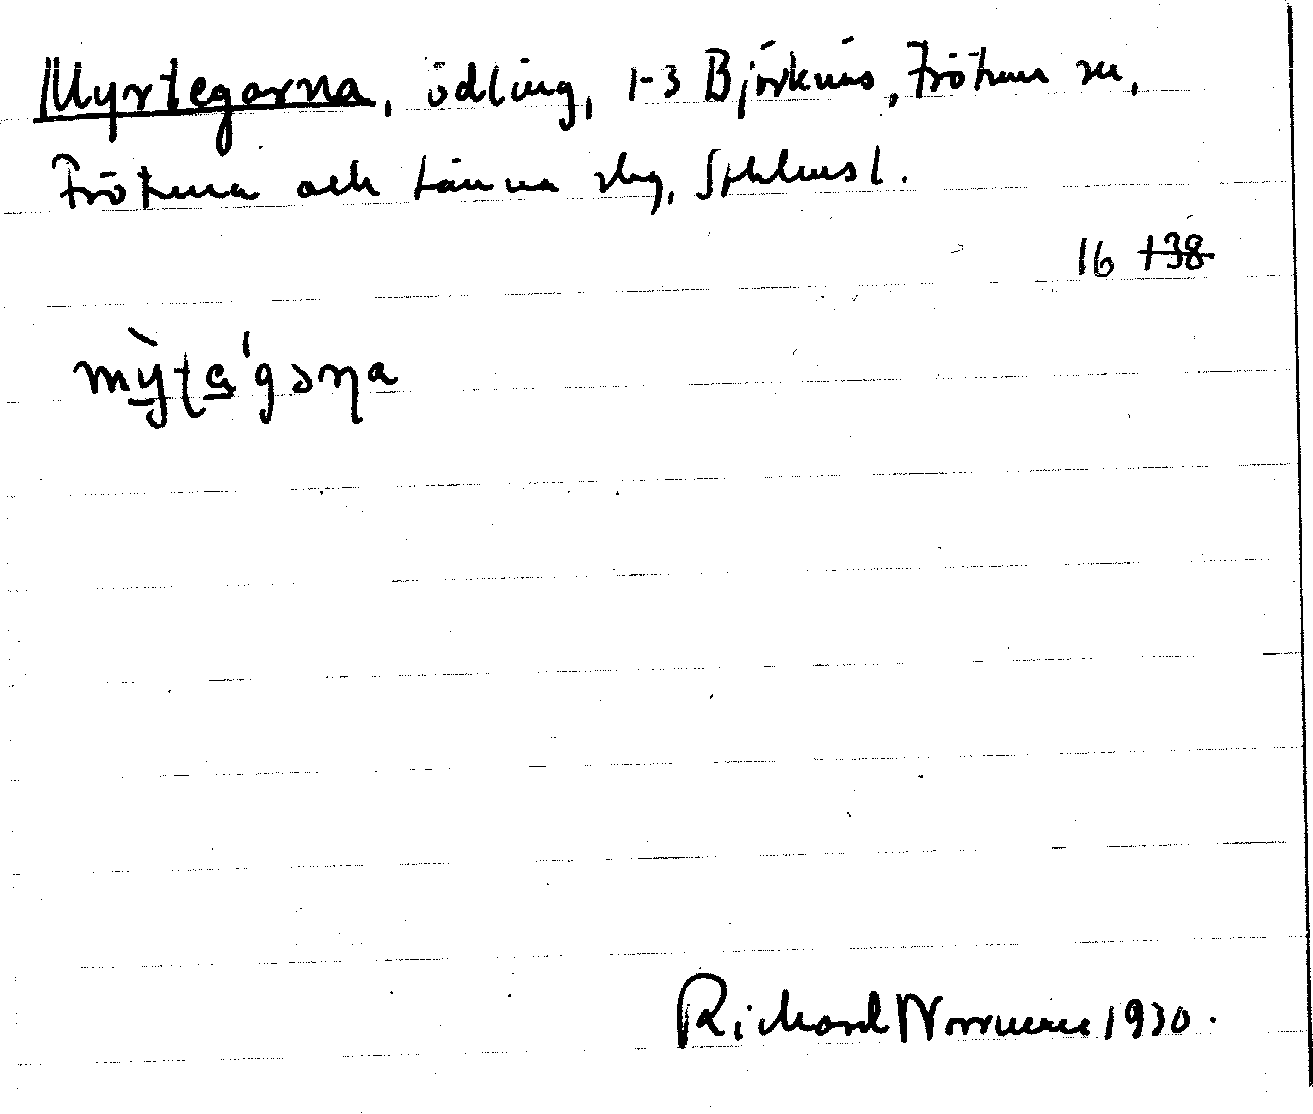 Myrtegarna, ödling, 1-3 Björknäs, Frötuna sn,
Frötuna och Länna skg, Sthlms l.
16 138
mỳʈɕ'gəɳa
Richard Norrman 1930.